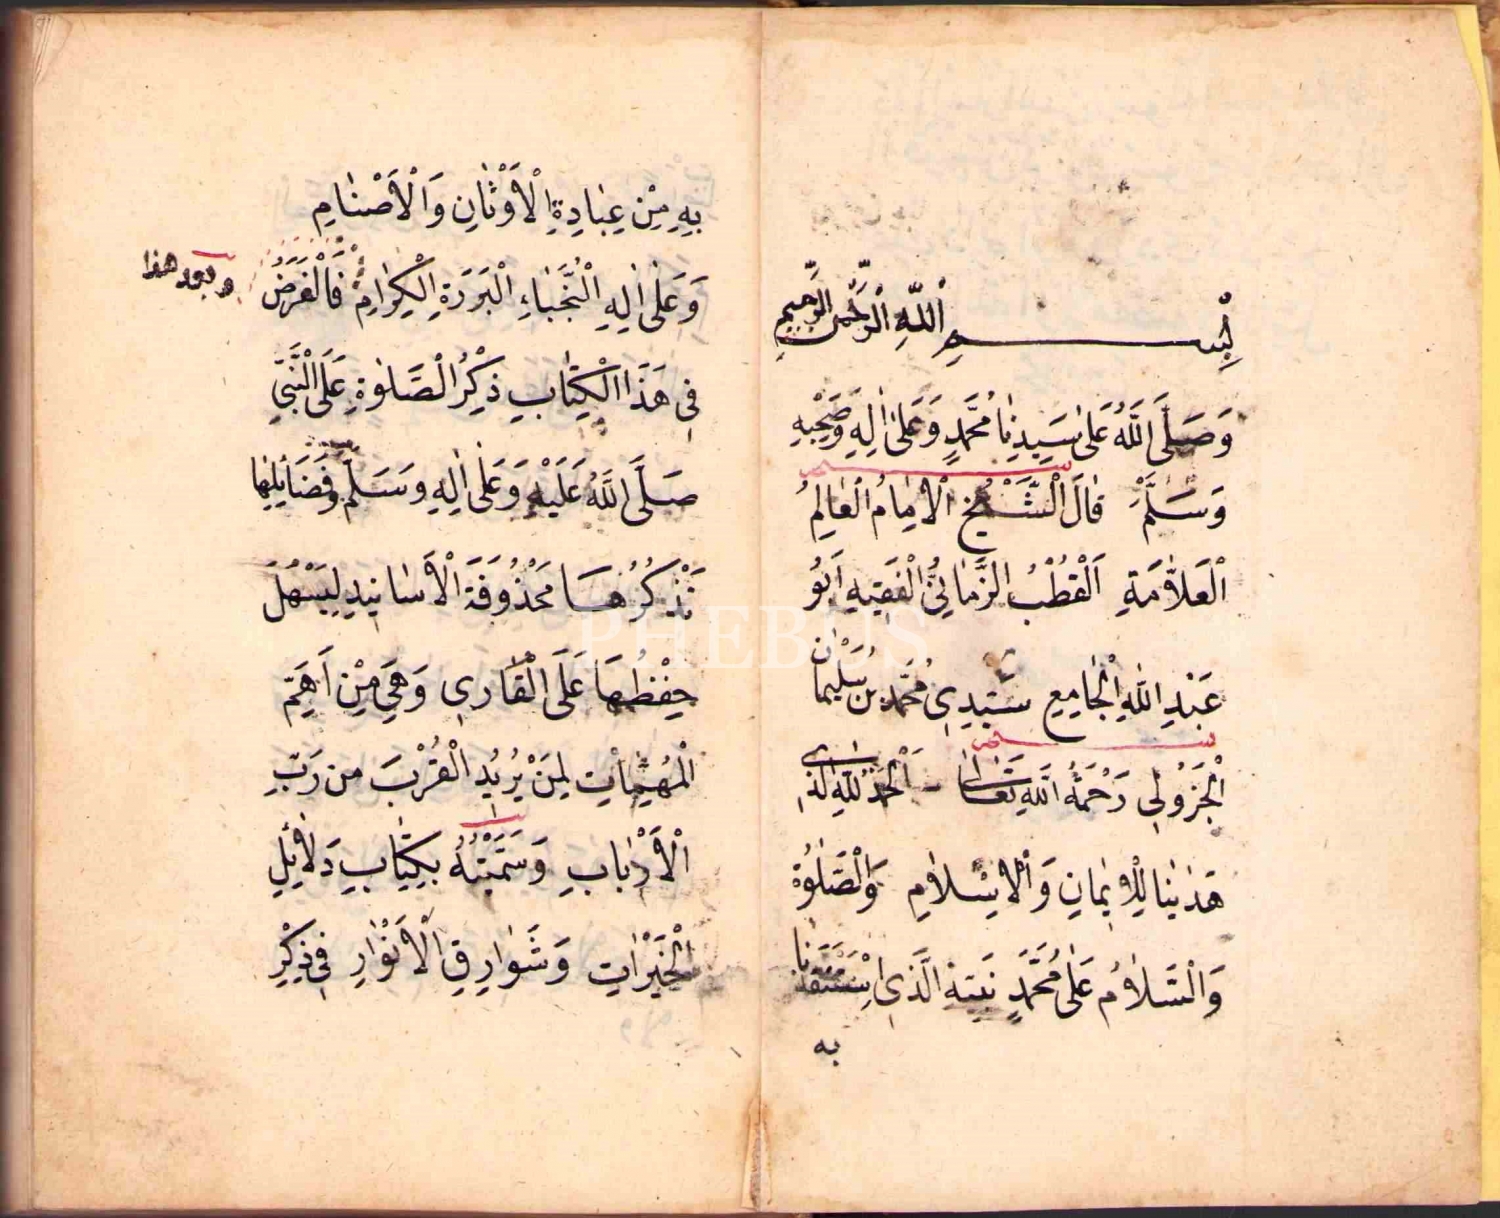 بِسْمِ اللّٰهِ الرَّحْمٰنِ الرَّحِيمِ
وَصَلَّى اللّٰهُ عَلٰى سَيِّدِنَا مُحَمَّدٍ وَعَلٰى اٰلِهِ وَصَحْبِهِ
وَسَلَّمَ قَالَ الشَّيْخُ الْاِمَامُ الْعَالِمُ
الْعَلَّامَةِ اَلْقُطْبُ الزَّمَانِيُّ الْفَقِيهِ اَبُو
عَبْدِ اللّٰهِ الْجَامِعِ سَيِّدِى مُحَمَّدِ بْنِ سُلَيْمَانَ
الْجَزُولِى رَحْمَةُ اللّٰهِ تَعَالٰى اَلْحَمْدُ لِلّٰهِ الَّذِى
هَدٰينَا لِلْاِيمَانِ وَالْاِسْلَامِ وَالصَّلٰوةُ
وَالسَّلَامُ عَلٰى مُحَمَّدٍ نَبِيِّهِ الَّذِى اسْتَنْقَذَنَا
به
بِهِ مِنْ عِبَادِةِ الْاَوْثَانِ وَالْاَصْنَامِ
وَعَلٰى اٰلِهِ النُّجَبَاءِ الْبَرَرَةِ الْكِرَامِ فَالْغَرَضُ
وبعد هذا
فِى هَذَا الْكِتَابِ ذِكْرُ الصَّلٰوةِ عَلَى النَّبِيِّ
صَلَّى اللّٰهُ عَلَيْهِ وَعَلٰى اٰلِهِ وَسَلَّمَ وَفَضَائِلِهَا
نَذْكُرُهَا مَحْذُوفَةَ الْاَسَانِيدِ لِيَسْهُلَ
حِفْظُهَا عَلَى الْقَارِى وَهِيَ مِنْ اَهَمِّ
الْمُهِمَّاتِ لِمَنْ يُرِيدُ الْقُرْبَ مِنْ رَبِّ
الْاَرْبَابِ وَسَمَّيْتُهُ بِكِتَابِ دَلَائِلِ
الْخَيْرَاتِ وَشَوَارِقِ الْاَنْوَارِ فِى ذِكْرِ
PHEBUS